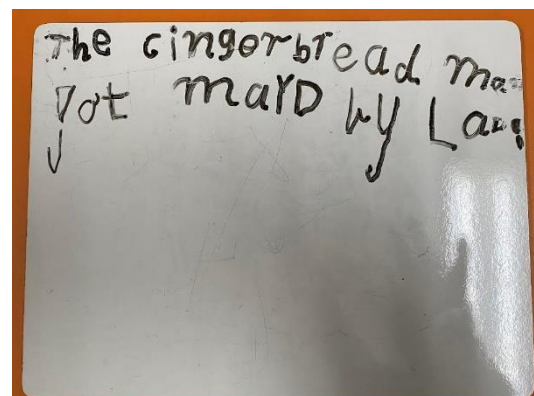 The gingerbread man
got mayD by Lang